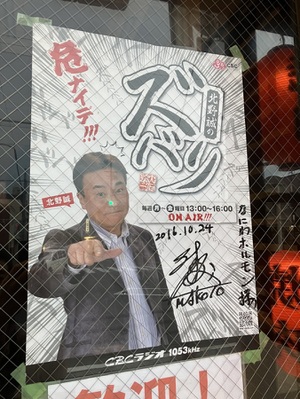 危
ナイテ!!!
北野誠の
ズバリ
北野誠
毎週月〜金曜日13:00~16:00
ON AIR!!!
2016.10.24
なにわホルモン様
MAKOTO
CBCラジオ 1053kHz
歓迎!